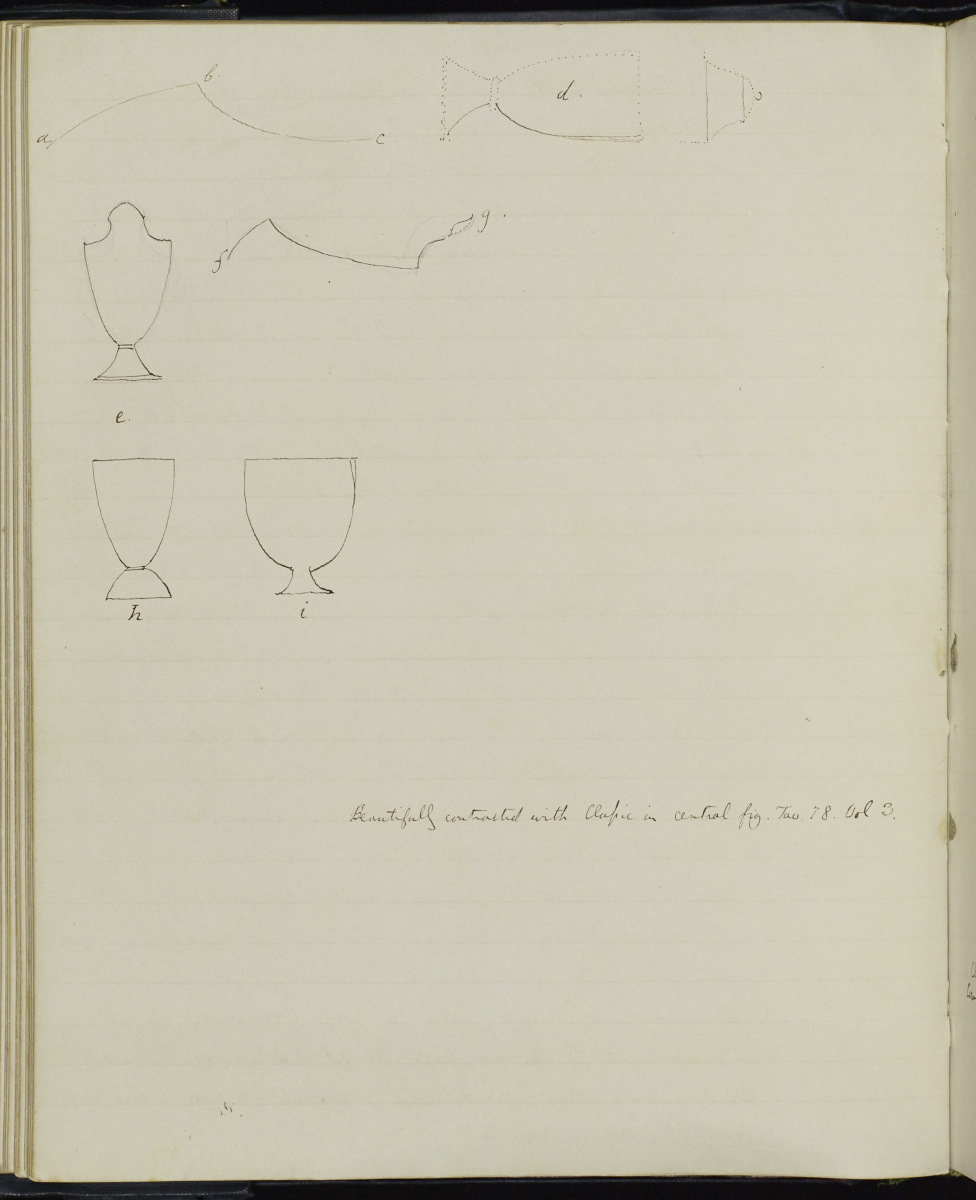 b.
a
c.
d.
g.
f
e.
h
i
Beautifully contrasted with Classic in central fig. Tav. 78. Vol 3.